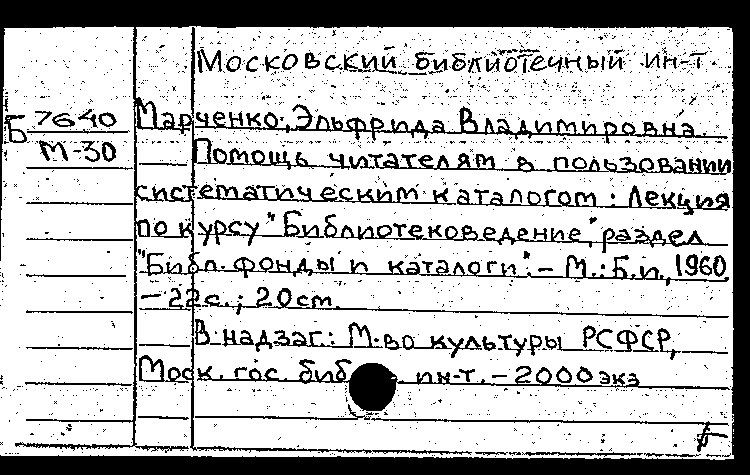 Московский библиотечный ин-т.
Б 7640
М-30
Марченко, Эльфрида Владимировна.
Помощь читателям в пользовании
систематическим каталогом: Лекция
по курсу "Библиотековедение", раздел
"Библ. фонды и каталоги". - М.: Б.и., 1960
- 22с.; 20см.
В надзаг.: М-во культуры РСФСР,
Моск. гос. биб ин-т. - 2000 экз